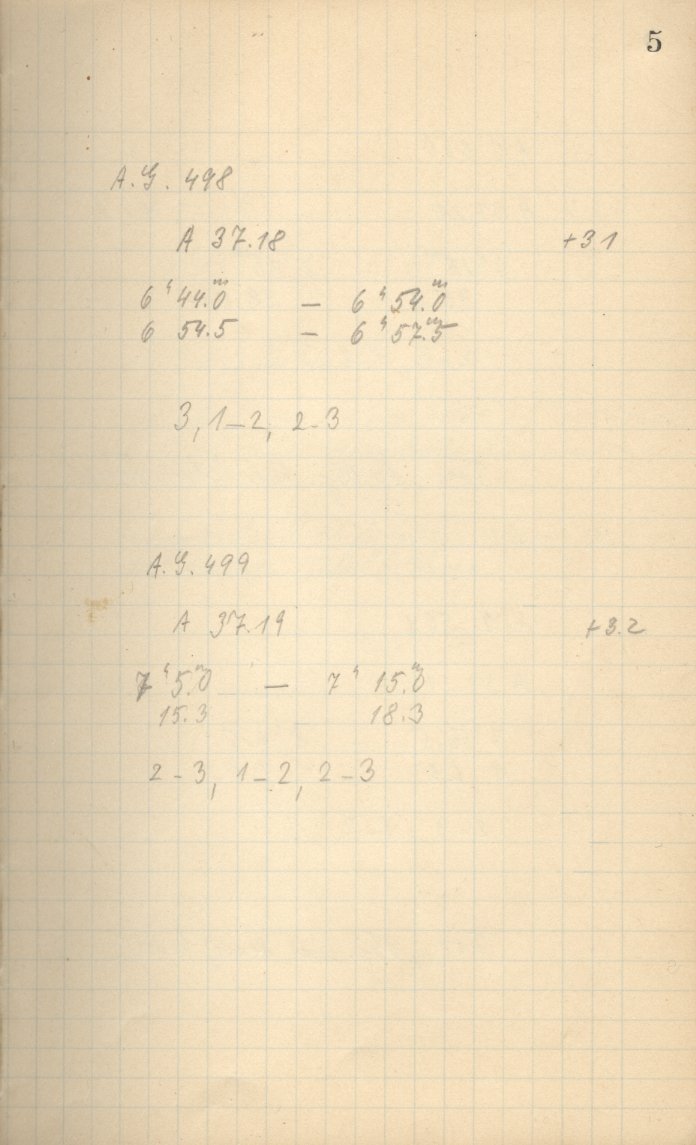 5
A.G. 498
A 37.18 +3.1
6ʰ44.ᵐ0 — 6ʰ54.ᵐ0
6 54.5 — 6ʰ57.ᵐ5
3, 1-2, 2-3
A.G. 499
A 37.19 +3.2
7ʰ5.ᵐ0 — 7ʰ15.ᵐ0
15.3 18.3
2-3, 1-2, 2-3